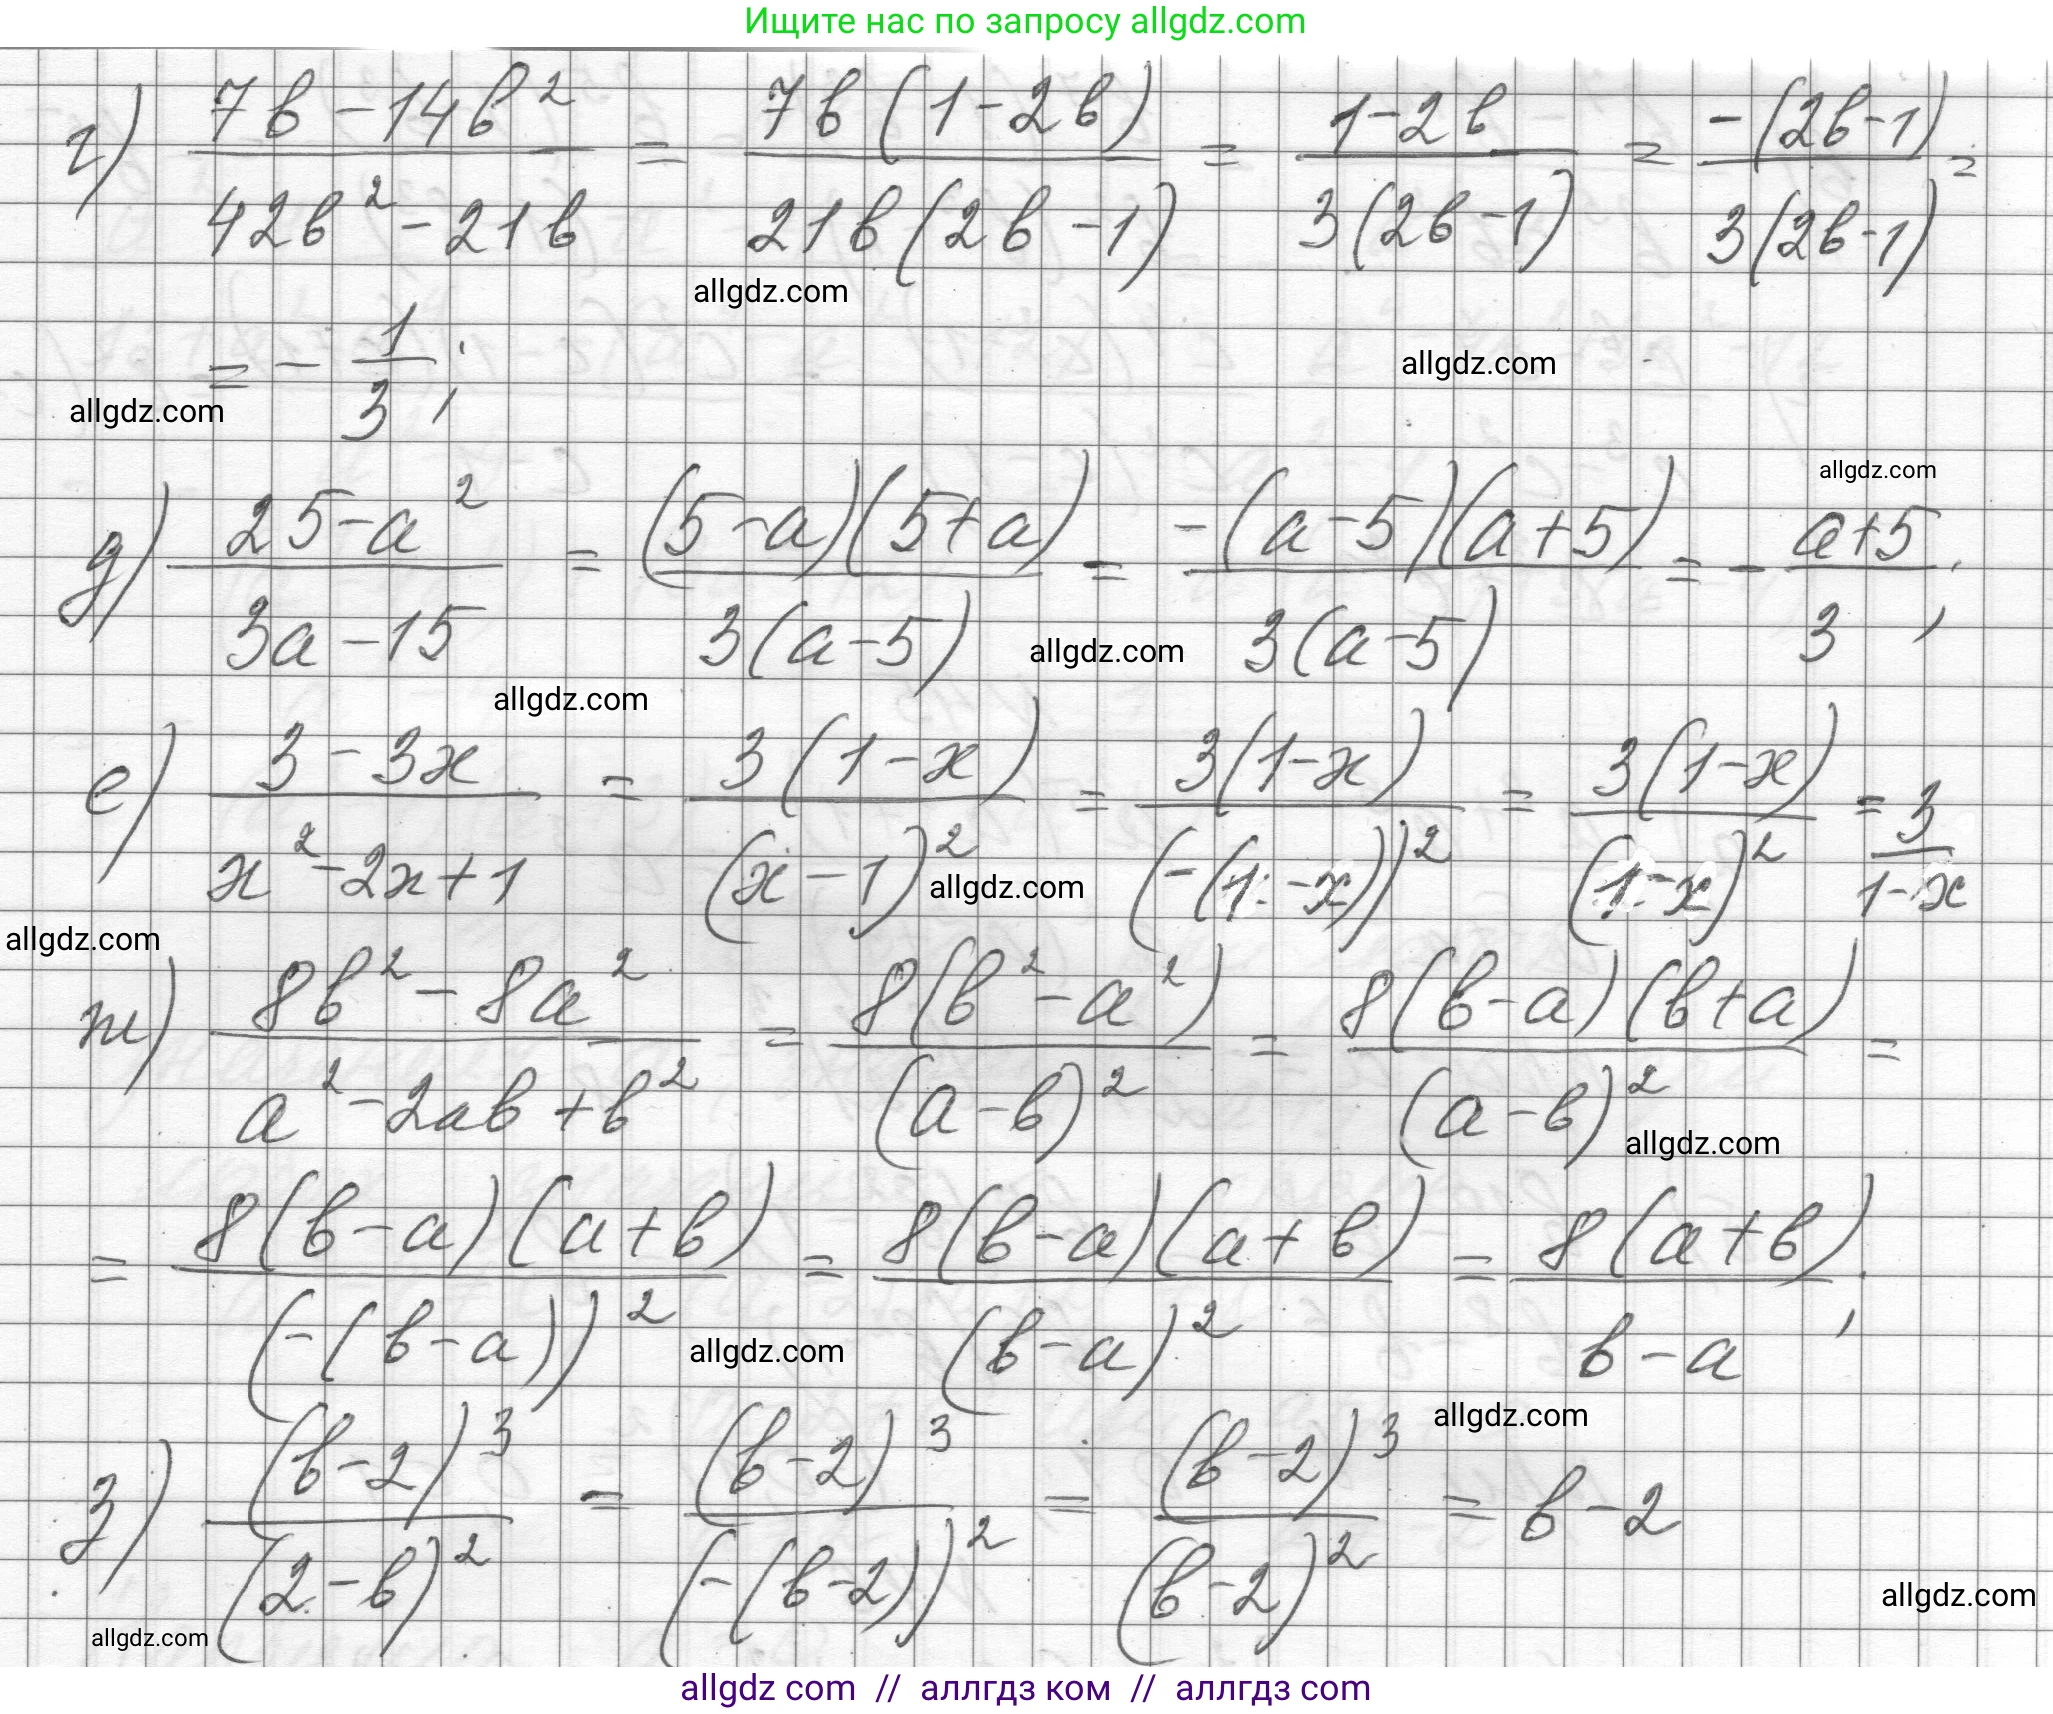 Ищите нас по запросу allgdz.com
г) (7b - 14b²)/(42b² - 21b) = (7b(1 - 2b))/(21b(2b - 1)) = (1 - 2b)/(3(2b - 1)) = (-(2b - 1))/(3(2b - 1)) =
allgdz.com
= - 1/3 ;
allgdz.com
allgdz.com
allgdz.com
д) (25 - a²)/(3a - 15) = ((5 - a)(5 + a))/(3(a - 5)) = (-(a - 5)(a + 5))/(3(a - 5)) = - (a + 5)/3 ;
allgdz.com
allgdz.com
е) (3 - 3x)/(x² - 2x + 1) = (3(1 - x))/((x - 1)²) = (3(1 - x))/((-(1 - x))²) = (3(1 - x))/((1 - x)²) = 3/(1 - x)
allgdz.com
allgdz.com
ж) (8b² - 8a²)/(a² - 2ab + b²) = (8(b² - a²))/((a - b)²) = (8(b - a)(b + a))/((a - b)²) =
allgdz.com
= (8(b - a)(a + b))/((-(b - a))²) = (8(b - a)(a + b))/((b - a)²) = (8(a + b))/(b - a) ;
allgdz.com
allgdz.com
з) ((b - 2)³)/((2 - b)²) = ((b - 2)³)/((-(b - 2))²) = ((b - 2)³)/((b - 2)²) = b - 2
allgdz.com
allgdz.com
allgdz com // аллгдз ком // аллгдз com